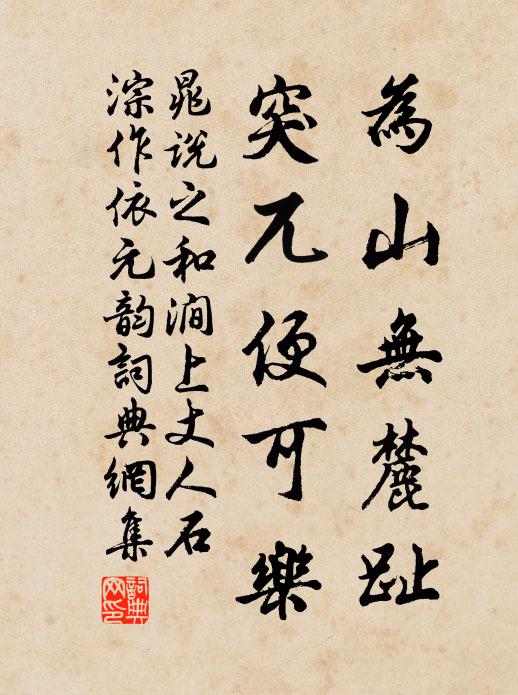 為山無麓趾
突兀便可樂
晁説之和澗上丈人石
淙作依元韵詞典網集
詞典網印